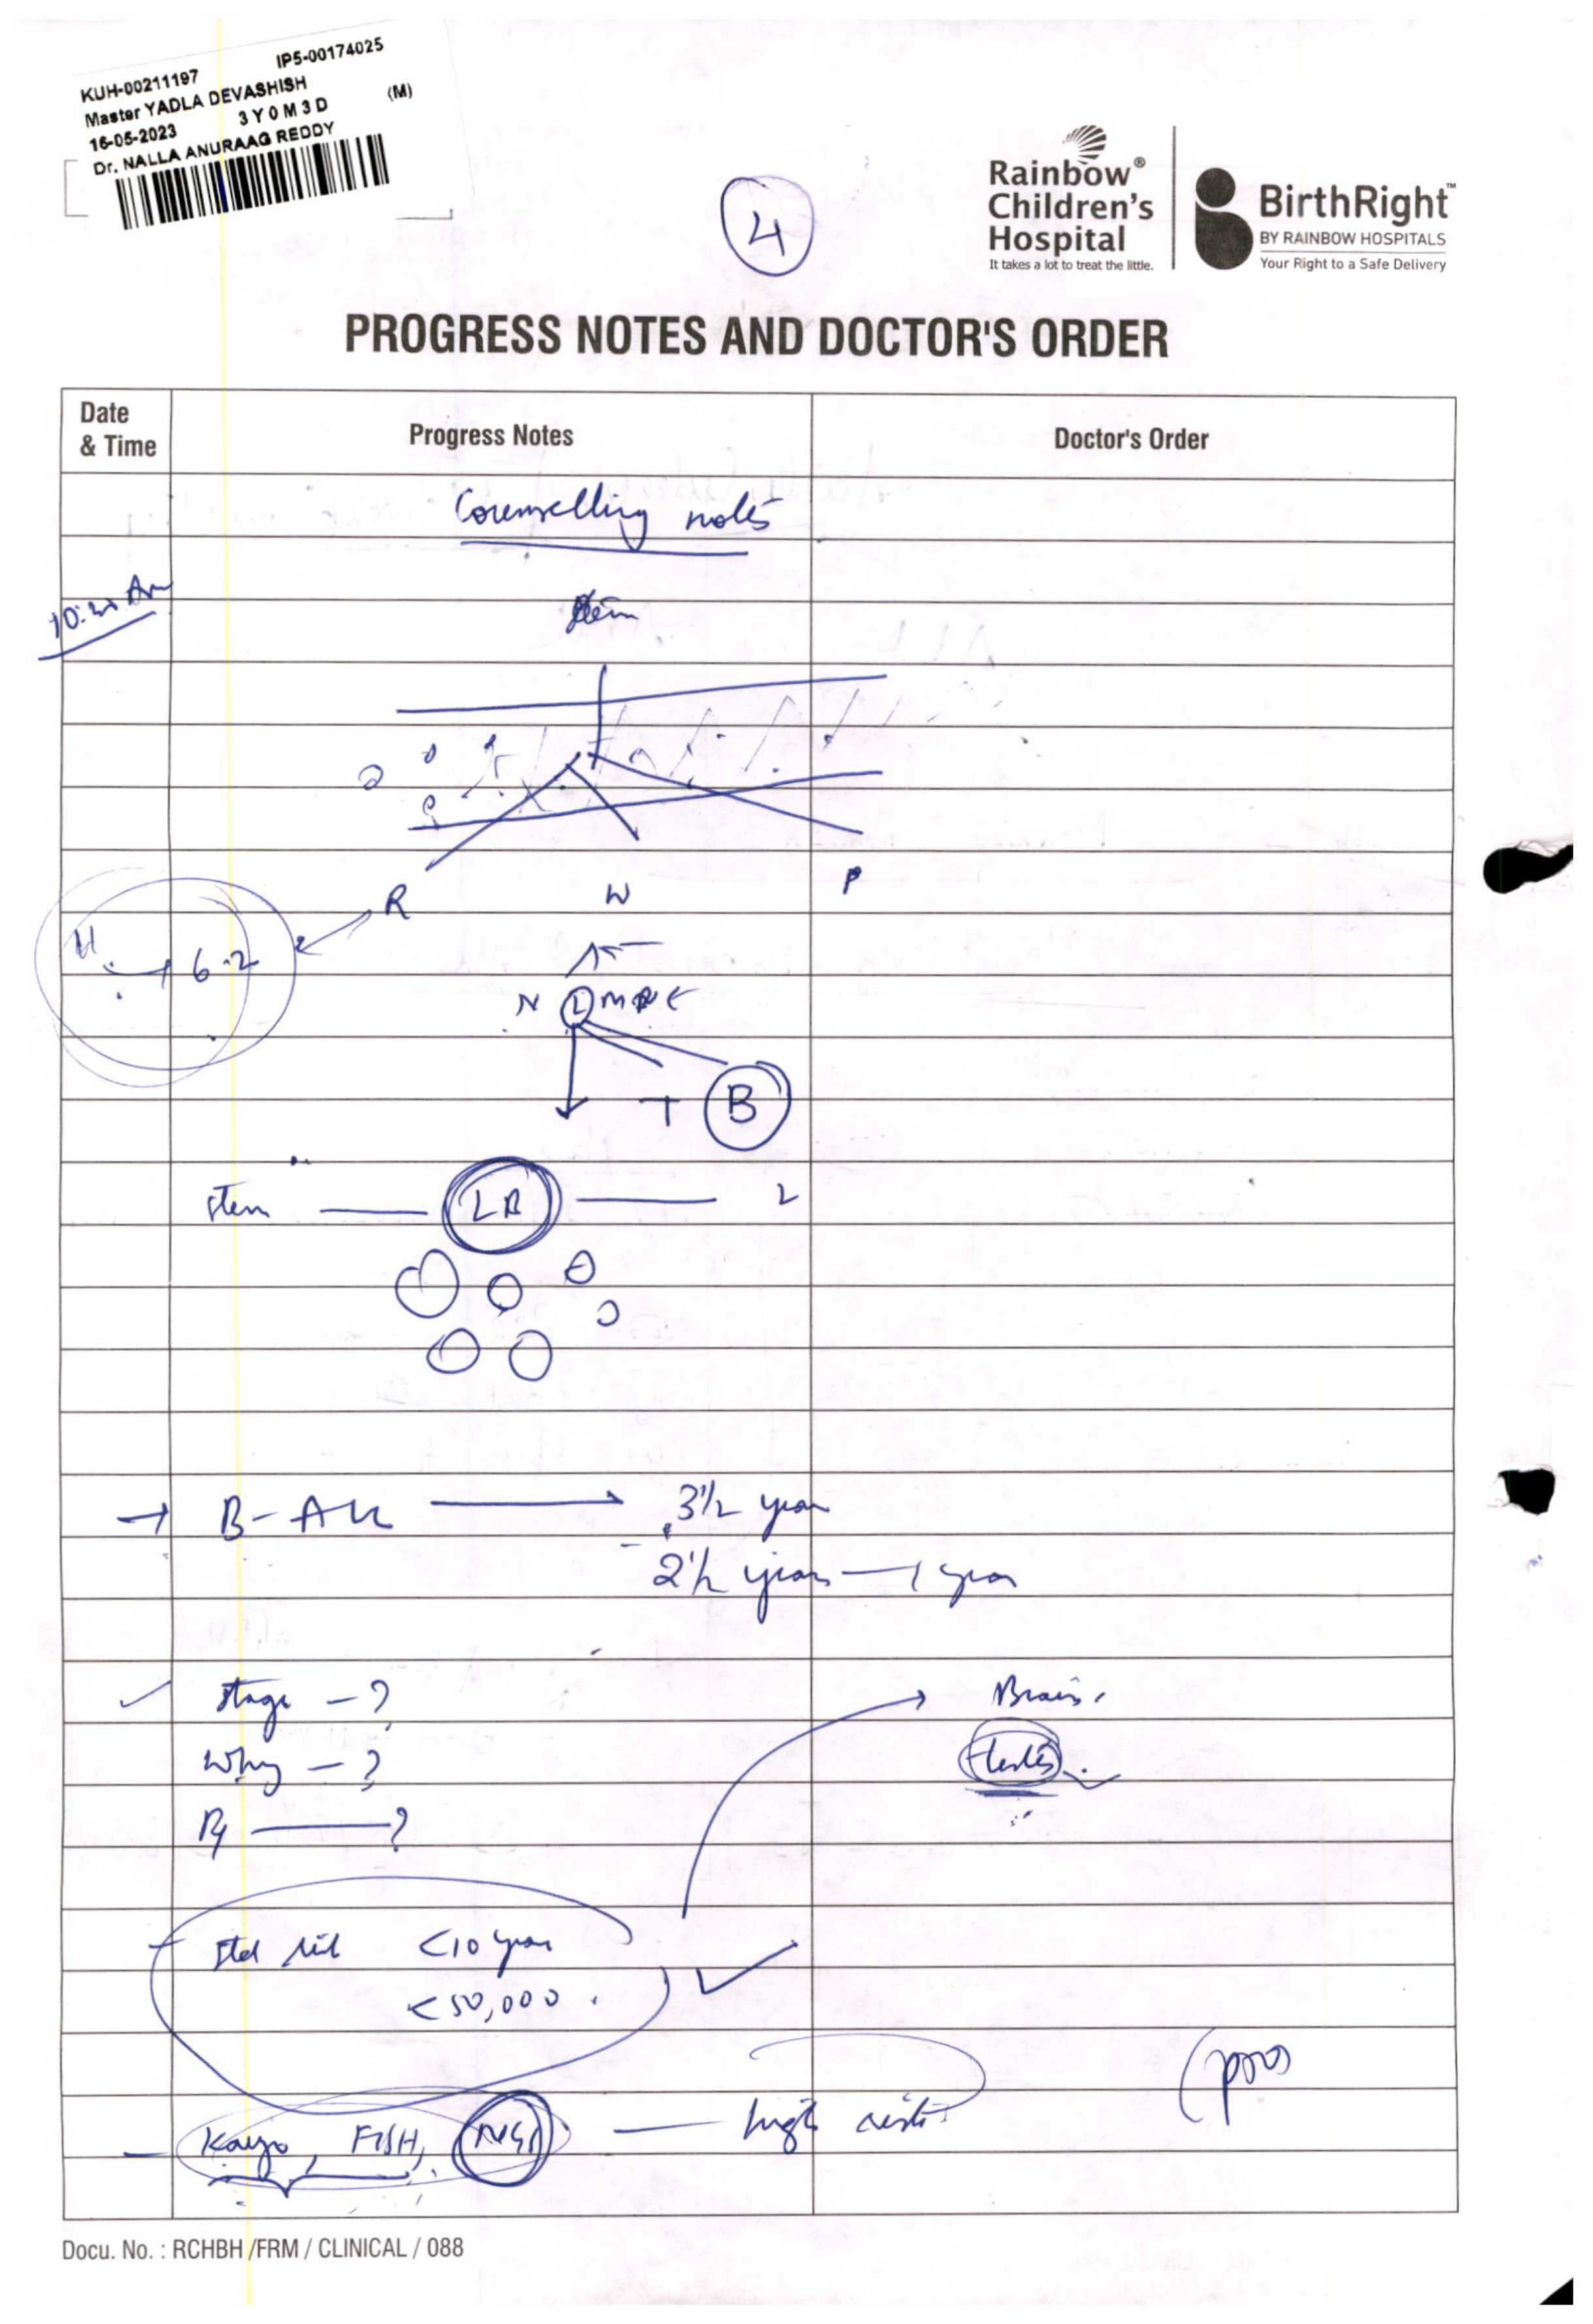 KUH-00211197 IP5-00174025
Master YADLA DEVASHISH
16-05-2023 3Y0M3D (M)
Dr. NALLA ANURAAG REDDY
4
Rainbow®
Children's
Hospital
It takes a lot to treat the little.
BirthRight™
BY RAINBOW HOSPITALS
Your Right to a Safe Delivery
PROGRESS NOTES AND DOCTOR'S ORDER
Date & Time Progress Notes Doctor's Order
Counselling notes
R W P
H 6.2
N L M
T B
Stem LB L
→ B-ALL → 3½ year
2½ years — 1 year
Stage - ?
Brain
Why - ?
testes
Rx — ?
Std risk <10 year
<50,000
Karyo, FISH, NGS — high risk
Docu. No. : RCHBH /FRM / CLINICAL / 088